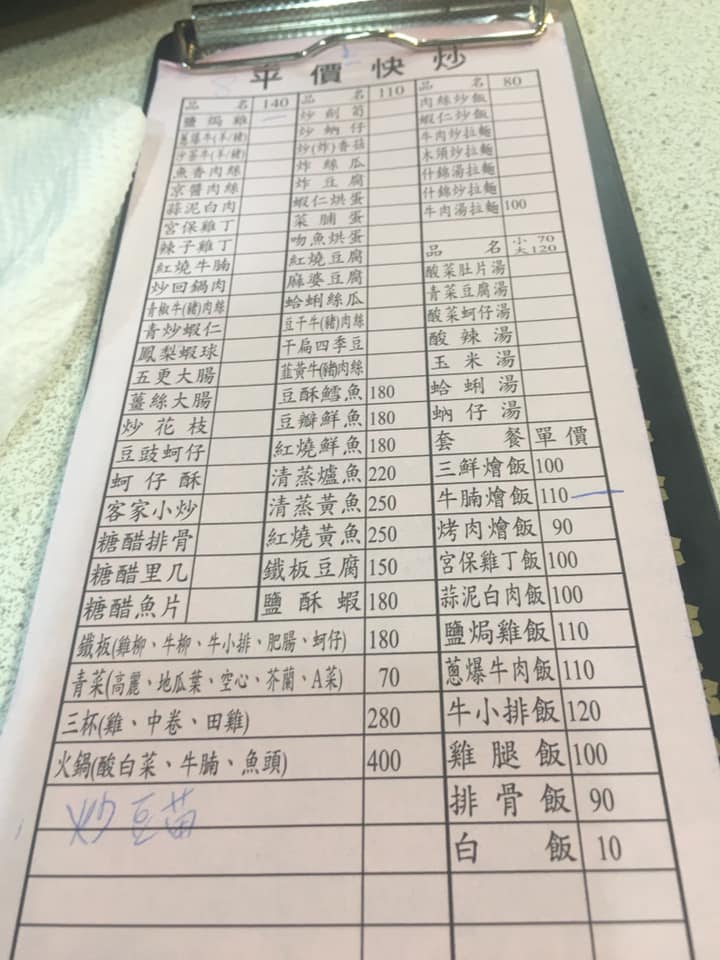 平價快炒
品名 140
鹽焗雞
蔥爆牛(羊/豬)
沙茶牛(羊/豬)
魚香肉絲
京醬肉絲
蒜泥白肉
宮保雞丁
辣子雞丁
紅燒牛腩
炒回鍋肉
青椒牛(豬)肉絲
青炒蝦仁
鳳梨蝦球
五更大腸
薑絲大腸
炒花枝
豆豉蚵仔
蚵仔酥
客家小炒
糖醋排骨
糖醋里几
糖醋魚片
品名 110
炒劍筍
炒蚋仔
炒(炸)香菇
炸絲瓜
炸豆腐
蝦仁烘蛋
菜脯蛋
吻魚烘蛋
紅燒豆腐
麻婆豆腐
蛤蜊絲瓜
豆干牛(豬)肉絲
干扁四季豆
韮黃牛(豬)肉絲
豆酥鱈魚 180
豆瓣鮮魚 180
紅燒鮮魚 180
清蒸爐魚 220
清蒸黃魚 250
紅燒黃魚 250
鐵板豆腐 150
鹽酥蝦 180
鐵板(雞柳、牛柳、牛小排、肥腸、蚵仔) 180
青菜(高麗、地瓜葉、空心、芥蘭、A菜) 70
三杯(雞、中卷、田雞) 280
火鍋(酸白菜、牛腩、魚頭) 400
炒豆苗
品名 80
肉絲炒飯
蝦仁炒飯
牛肉炒拉麵
木須炒拉麵
什錦湯拉麵
什錦炒拉麵
牛肉湯拉麵 100
品名 小70 大120
酸菜肚片湯
青菜豆腐湯
酸菜蚵仔湯
酸辣湯
玉米湯
蛤蜊湯
蚋仔湯
套餐 單價
三鮮燴飯 100
牛腩燴飯 110
烤肉燴飯 90
宮保雞丁飯 100
蒜泥白肉飯 100
鹽焗雞飯 110
蔥爆牛肉飯 110
牛小排飯 120
雞腿飯 100
排骨飯 90
白飯 10